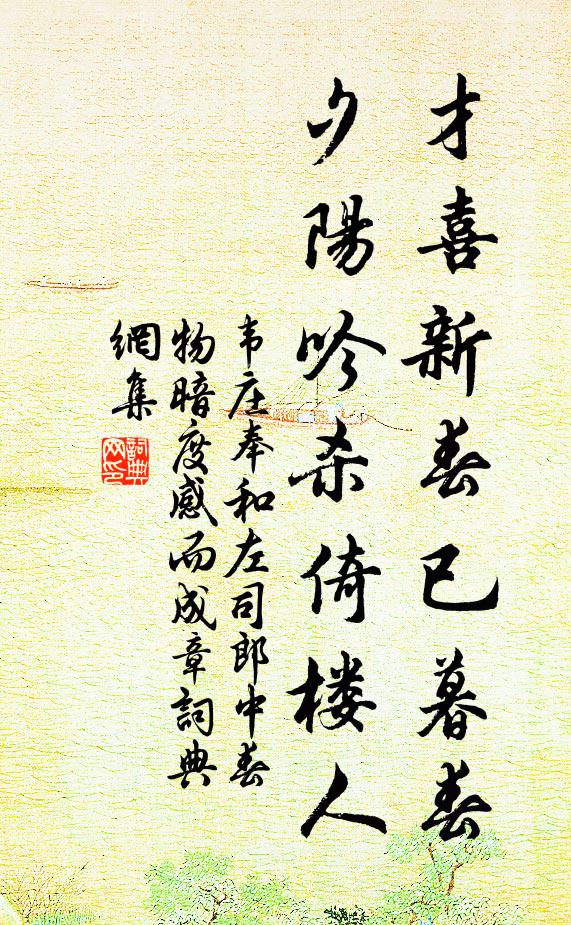 才喜新春已暮春
夕陽吟杀倚楼人
韦庄奉和左司郎中春
物暗度感而成章詞典
網集